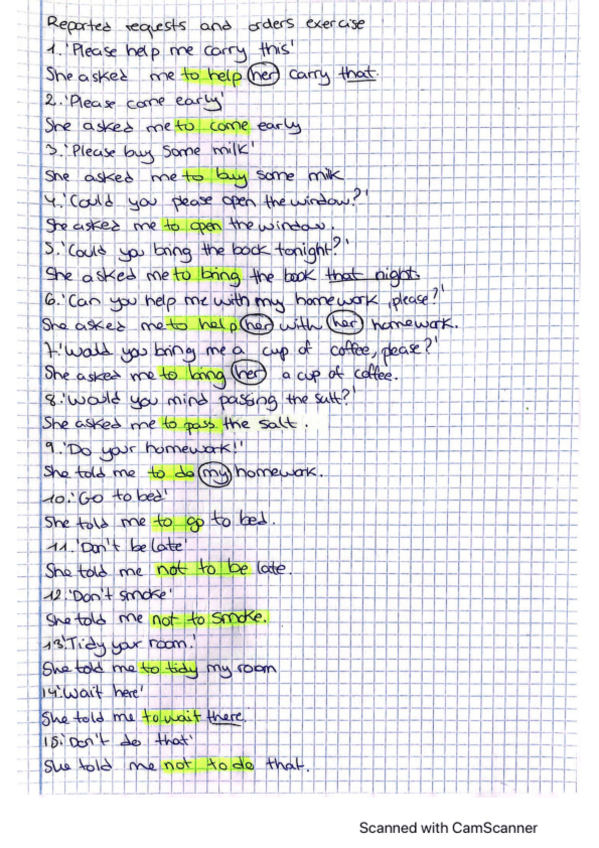 Reported requests and orders exercise
1. 'Please help me carry this'
She asked me to help her carry that.
2. 'Please come early'
She asked me to come early
3. 'Please buy some milk'
She asked me to buy some milk
4. 'Could you please open the window?'
She asked me to open the window.
5. 'Could you bring the book tonight?'
She asked me to bring the book that night.
6. 'Can you help me with my homework, please?'
She asked me to help her with her homework.
7. 'Would you bring me a cup of coffee, please?'
She asked me to bring her a cup of coffee.
8. 'Would you mind passing the salt?'
She asked me to pass the salt.
9. 'Do your homework!'
She told me to do my homework.
10. 'Go to bed'
She told me to go to bed.
11. 'Don't be late'
She told me not to be late.
12. 'Don't smoke'
She told me not to smoke.
13. 'Tidy your room.'
She told me to tidy my room
14 'Wait here'
She told me to wait there.
15. 'Don't do that'
She told me not to do that.
Scanned with CamScanner